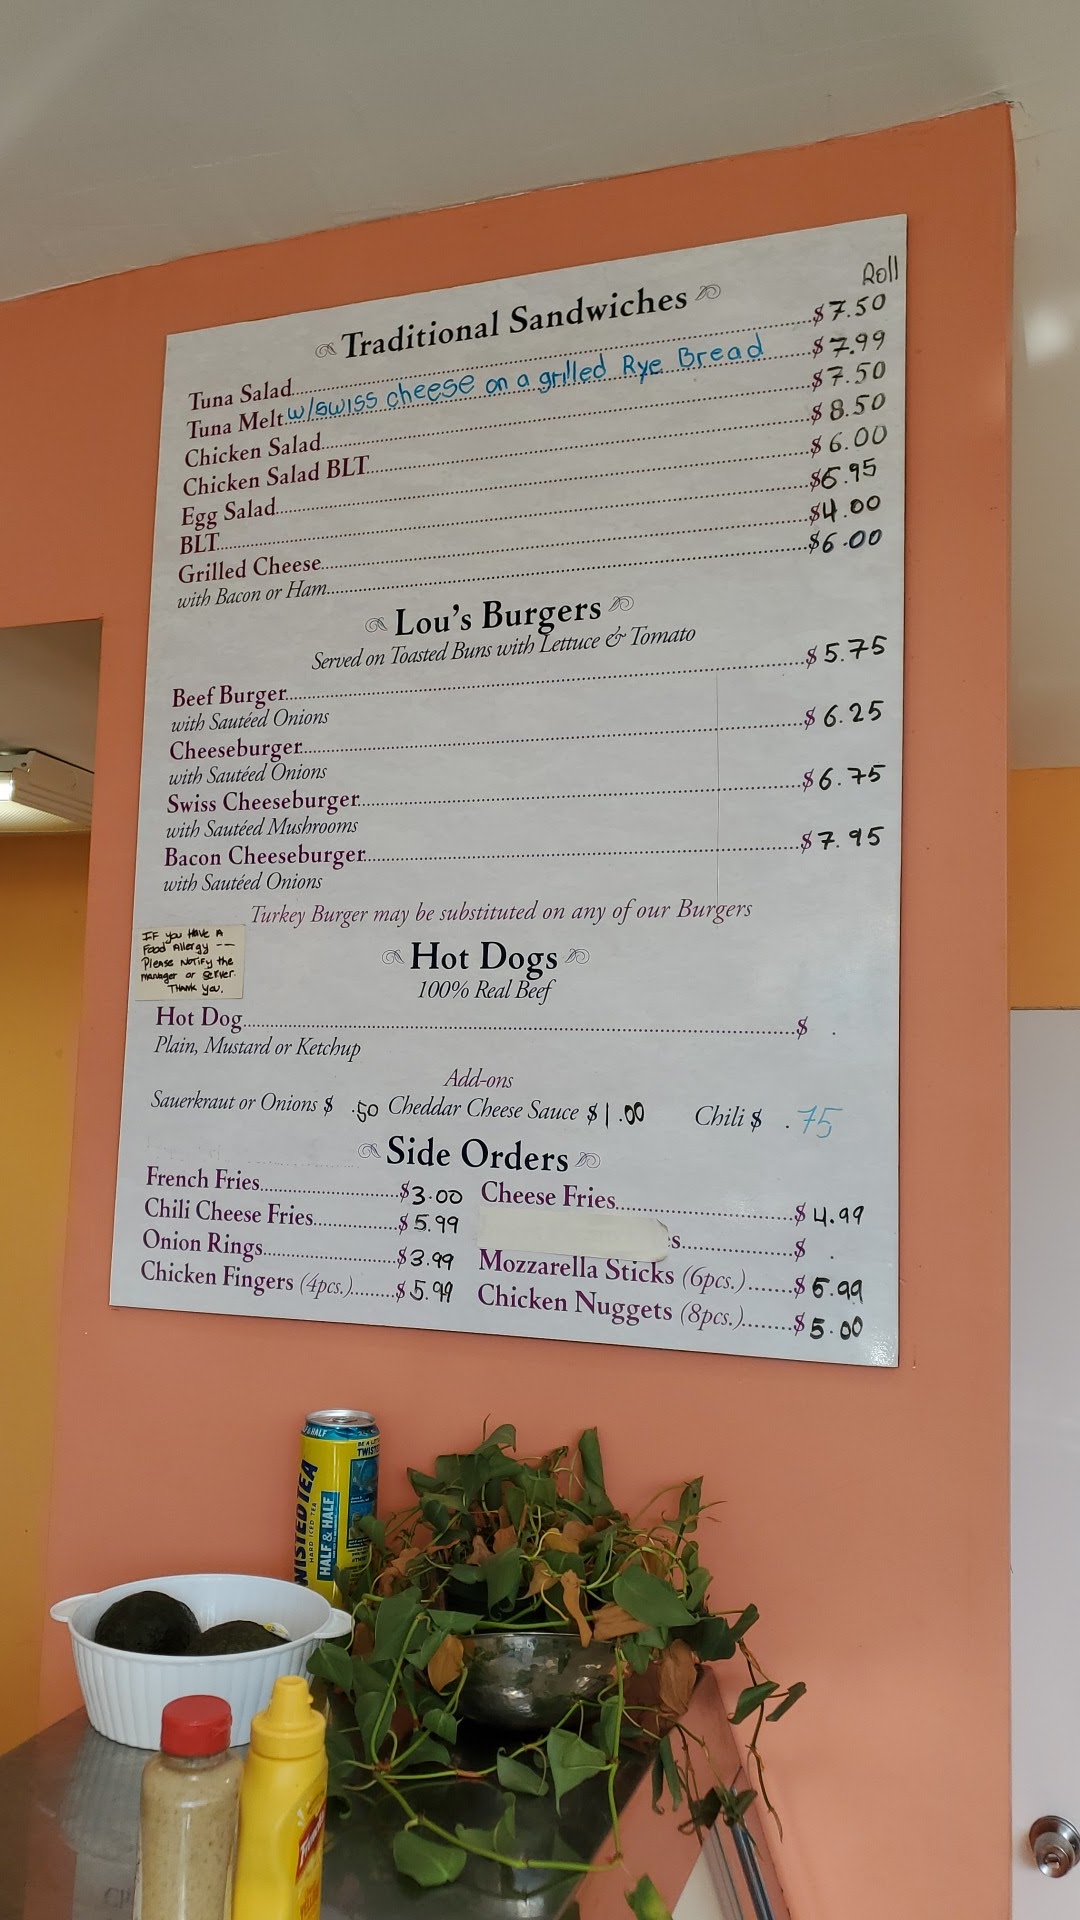 Roll
Traditional Sandwiches
Tuna Salad $7.50
Tuna Melt w/swiss cheese on a grilled Rye Bread $7.99
Chicken Salad $7.50
Chicken Salad BLT $8.50
Egg Salad $6.00
BLT $6.95
Grilled Cheese $4.00
with Bacon or Ham $6.00
Lou's Burgers
Served on Toasted Buns with Lettuce & Tomato
Beef Burger $5.75
with Sautéed Onions
Cheeseburger $6.25
with Sautéed Onions
Swiss Cheeseburger $6.75
with Sautéed Mushrooms
Bacon Cheeseburger $7.95
with Sautéed Onions
Turkey Burger may be substituted on any of our Burgers
IF you HAVE A
Food Allergy --
Please NoTiFy the
manager or Server.
THANK you.
Hot Dogs
100% Real Beef
Hot Dog $ .
Plain, Mustard or Ketchup
Add-ons
Sauerkraut or Onions $ .50 Cheddar Cheese Sauce $1.00 Chili $ .75
Side Orders
French Fries $3.00
Chili Cheese Fries $5.99
Onion Rings $3.99
Chicken Fingers (4pcs.) $5.99
Cheese Fries $4.99
es $ .
Mozzarella Sticks (6pcs.) $5.99
Chicken Nuggets (8pcs.) $5.00
& HALF
TWISTED TEA
HARD ICED TEA
HALF & HALF